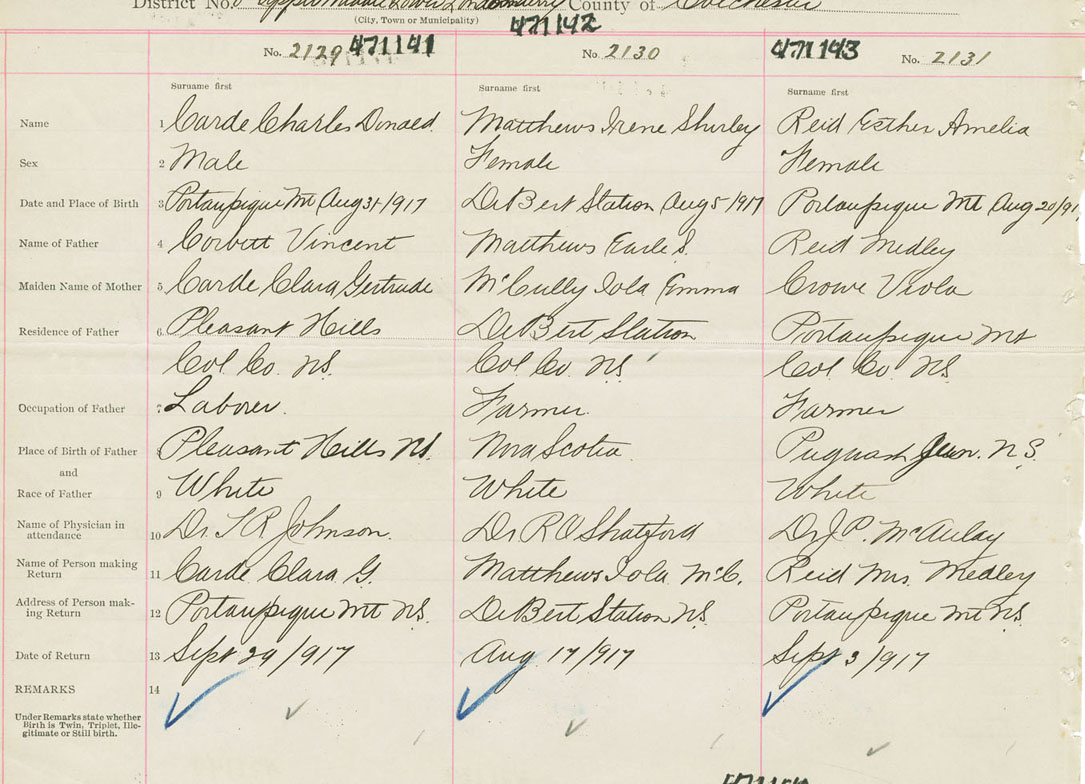 District No. County of Colchester
(City, Town or Municipality)
471142
No. 2129 471141 No. 2130 471143 No. 2131
Surname first Surname first Surname first
Name 1 Carde Charles Donald Matthews Irene Shirley Reid Esther Amelia
Sex 2 Male Female Female
Date and Place of Birth 3 Portaupique Mt Aug 31/917 DeBert Station Aug 5/917 Portaupique Mt Aug 20/91
Name of Father 4 Corbett Vincent Matthews Earle S. Reid Medley
Maiden Name of Mother 5 Carde Clara Gertrude McCully Iola Emma Crowe Viola
Residence of Father 6 Pleasant Hills DeBert Station Portaupique Mt
Col Co. NS. Col Co. NS Col Co. NS
Occupation of Father 7 Laborer. Farmer. Farmer
Place of Birth of Father Pleasant Hills NS. Nova Scotia Pugwash Jun. N S.
and
Race of Father 9 White White White
Name of Physician in
attendance 10 Dr. T R Johnson. Dr R O Shatford Dr J P. McAulay
Name of Person making
Return 11 Carde Clara G. Matthews Iola McC. Reid Mrs. Medley
Address of Person mak-
ing Return 12 Portaupique Mt NS. DeBert Station NS. Portaupique Mt NS.
Date of Return 13 Sept 29/917 Aug 17/917 Sept 3/917
REMARKS 14
Under Remarks state whether
Birth is Twin, Triplet, Ille-
gitimate or Still birth.